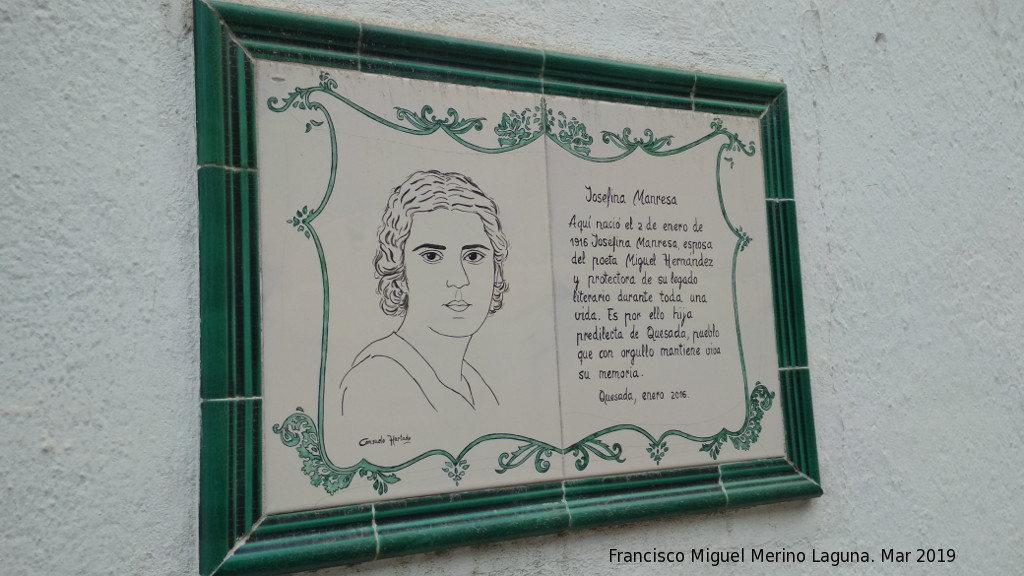 Josefina Manresa
Aquí nació el 2 de enero de
1916 Josefina Manresa, esposa
del poeta Miguel Hernández
y protectora de su legado
literario durante toda una
vida. Es por ello hija
predilecta de Quesada, pueblo
que con orgullo mantiene viva
su memoria.
Quesada, enero 2016.
Consuelo Hurtado
Francisco Miguel Merino Laguna. Mar 2019